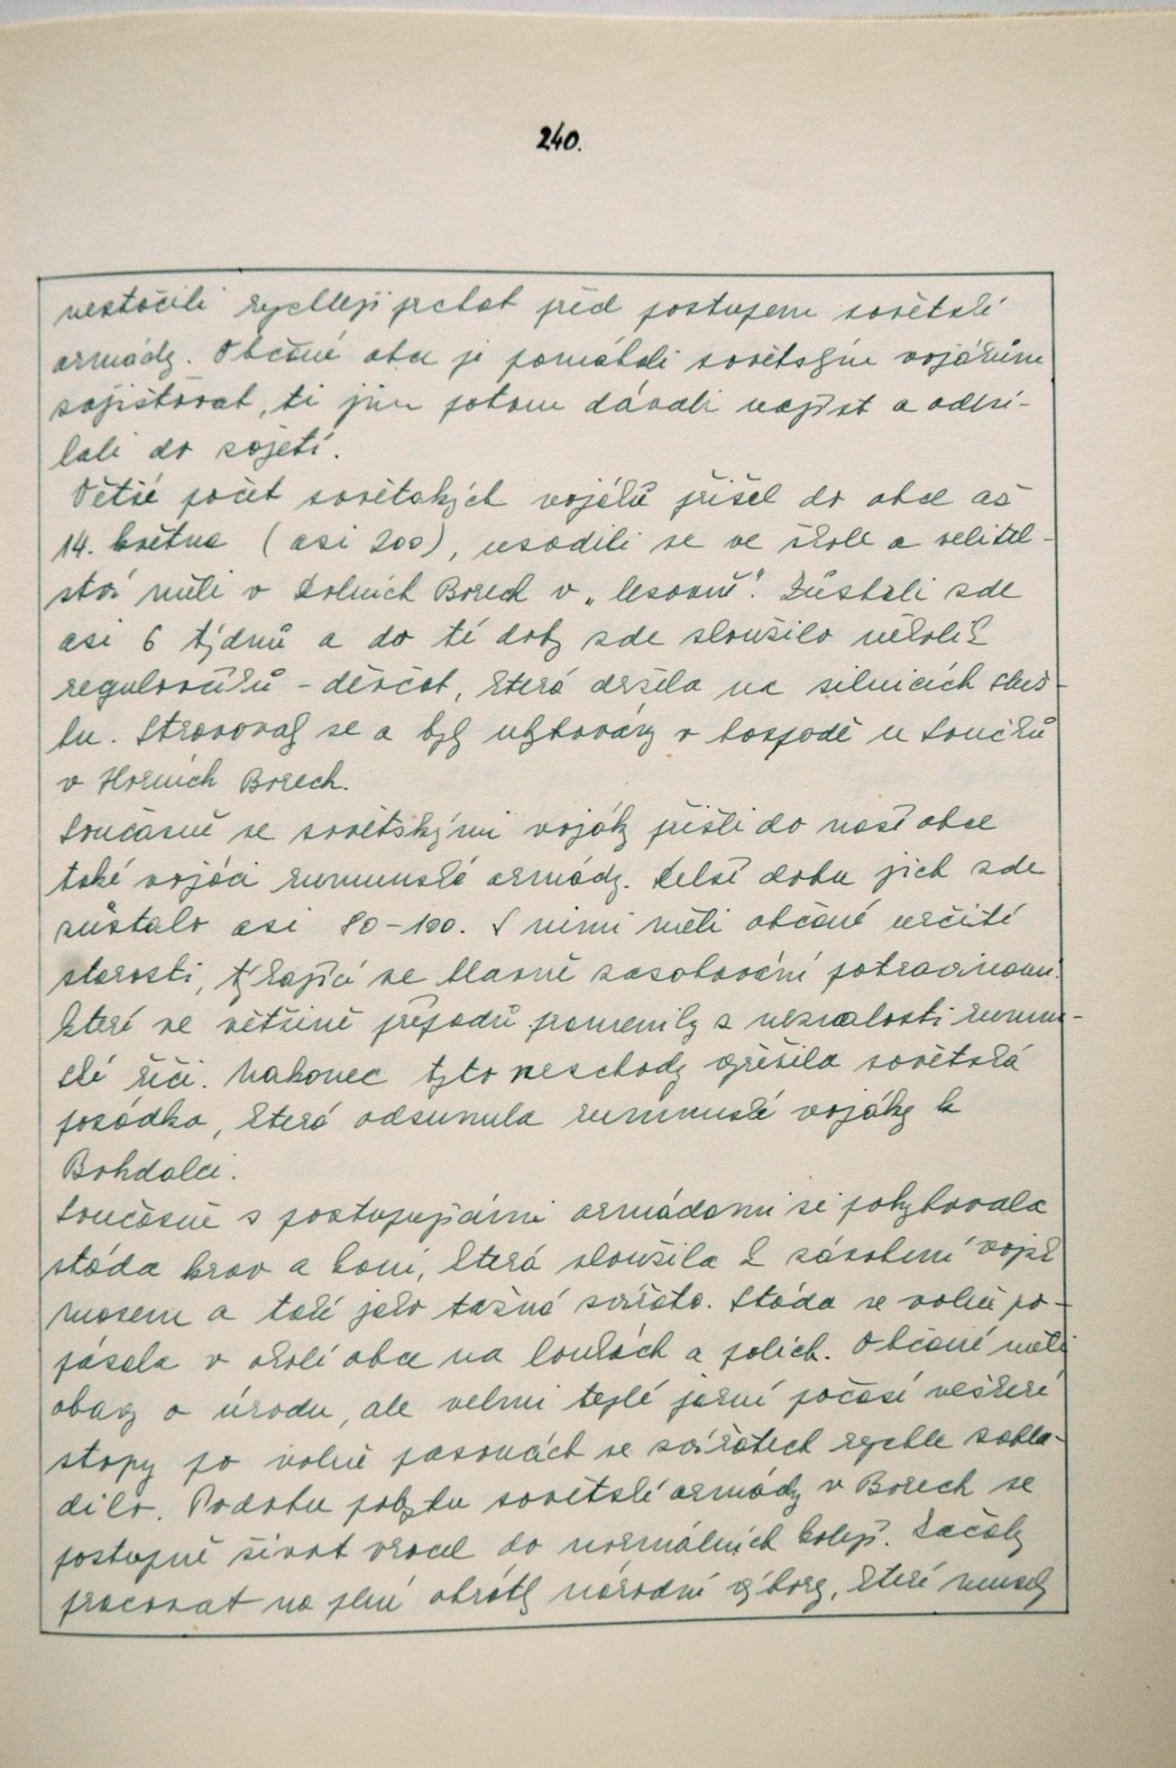 240.
nestačili rychleji prchat před postupem sovětské
armády. Občané obce je pomáhali sovětským vojákům
zajišťovat, ti jim potom dávali najíst a odesí-
lali do zajetí.
Větší počet sovětských vojáků přišel do obce až
14. května (asi 200), usadili se ve škole a velitel-
ství měli v Dolních Borech v „lesovně". Zůstali zde
asi 6 týdnů a do té doby zde sloužilo několik
regulovčíků - děvčat, která držela na silnicích služ-
bu. Stravovaly se a byly ubytovány v hospodě u Součků
v Horních Borech.
Současně se sovětskými vojáky přišli do naší obce
také vojáci rumunské armády. Delší dobu jich zde
zůstalo asi 80-100. S nimi měli občané určité
starosti, týkající se hlavně zásobování potravinami.
které ve většině případů pramenily z neznalosti rumun-
ské řeči. Nakonec tyto neschody vyřešila sovětská
posádka, která odsunula rumunské vojáky k
Bohdalci.
Současně s postupujícími armádami se pohybovala
stáda krav a koní, která sloužila k zásobení vojsk
masem a také jako tažná zvířata. Stáda se volně po-
pásala v okolí obce na loukách a polích. Občané měli
obavy o úrodu, ale velmi teplé jarní počasí veškeré
stopy po volně pasoucích se zvířatech rychle zahla-
dilo. Po dobu pobytu sovětské armády v Borech se
postupně život vracel do normálních kolejí. Začaly
pracovat na plné obrátky národní výbory, které musely